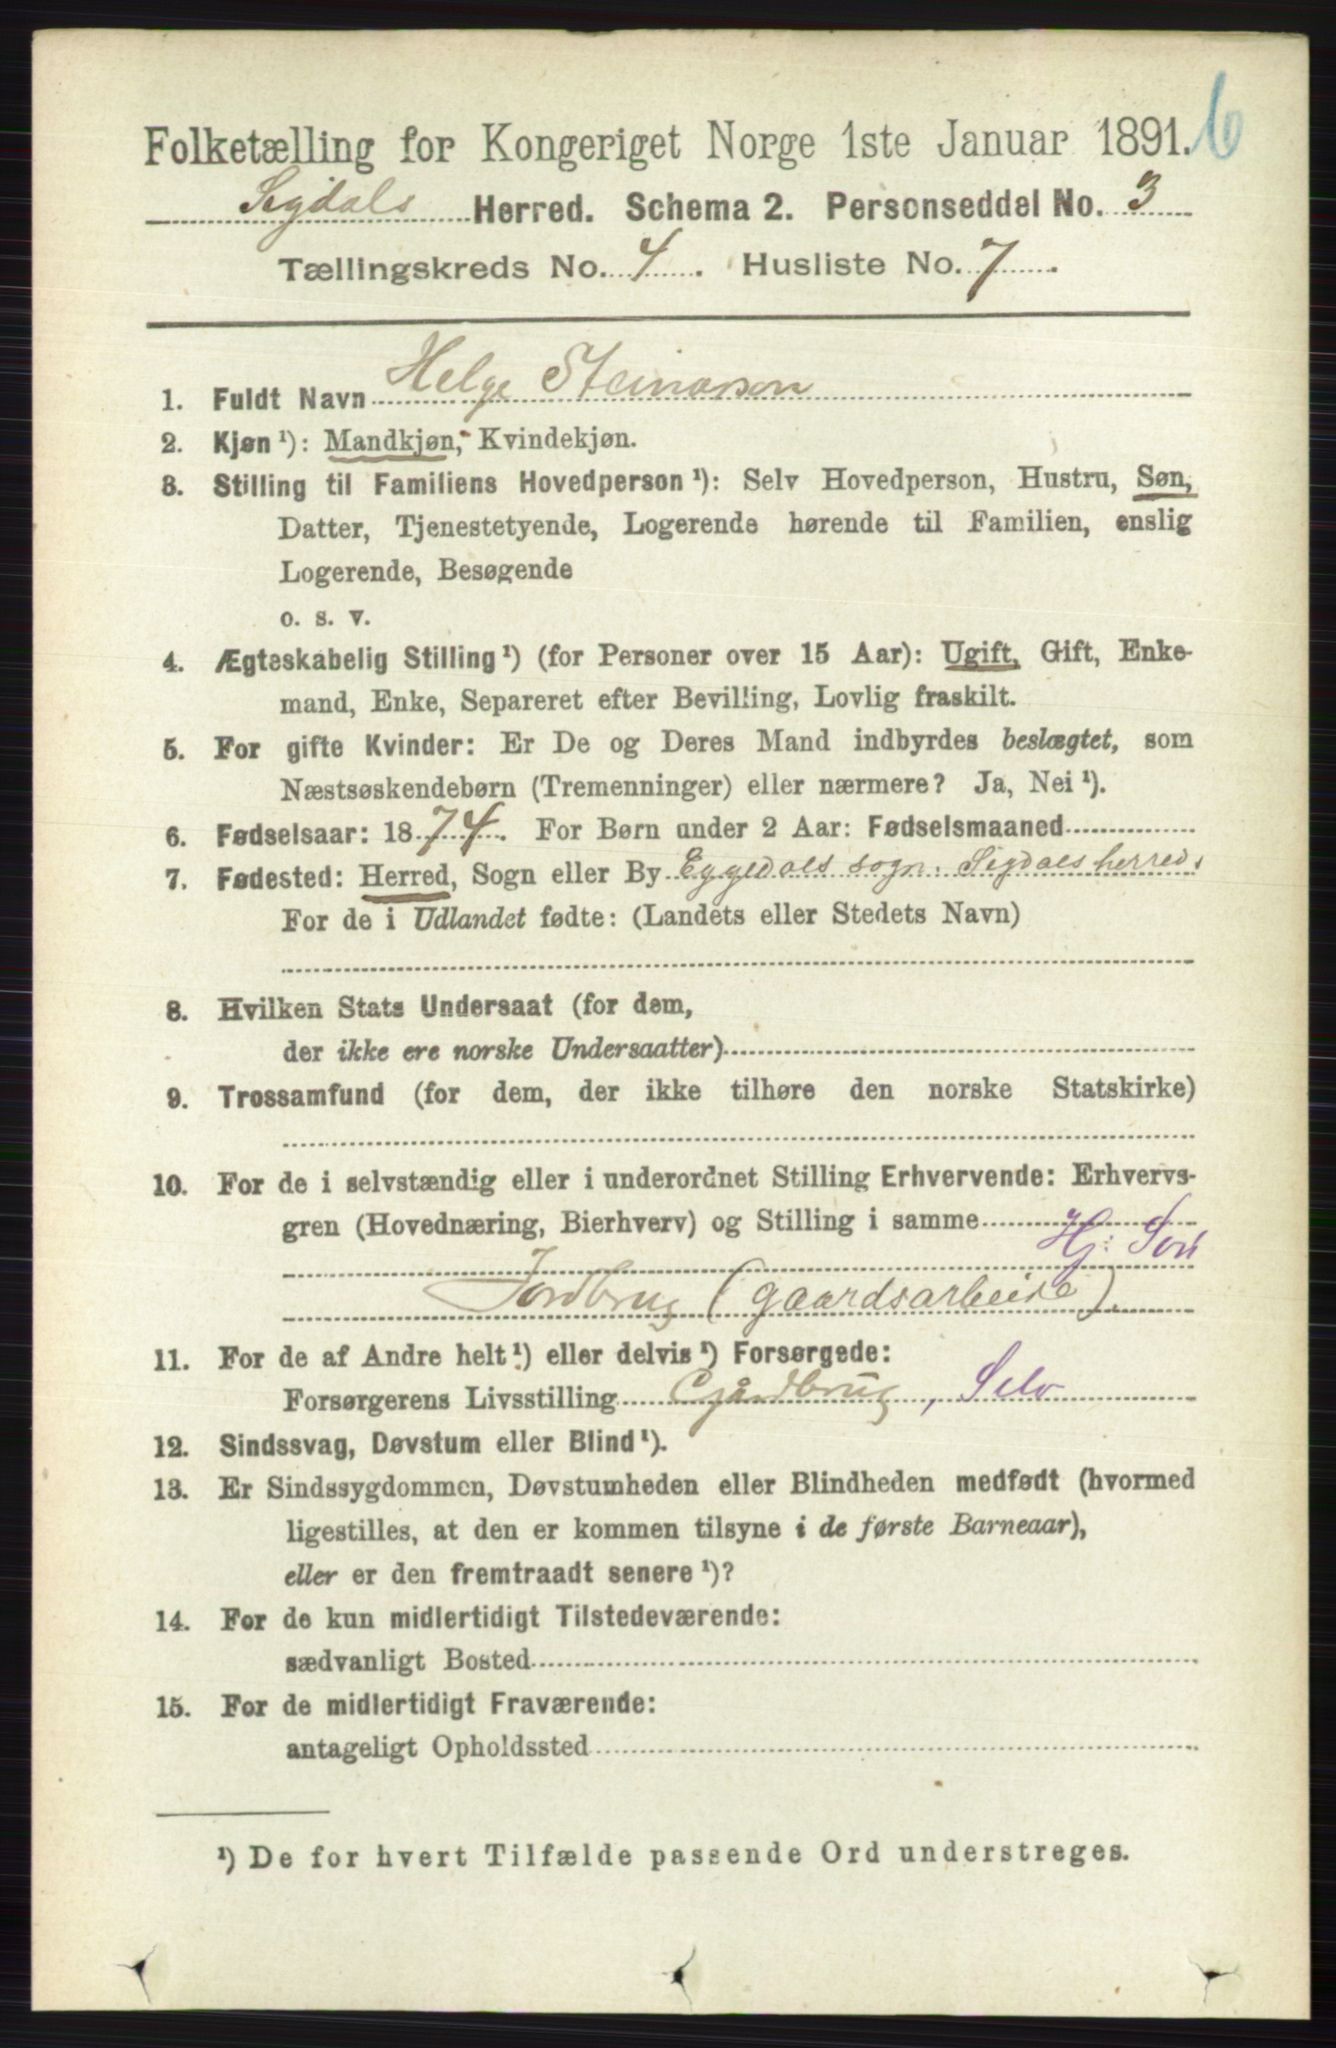 6
Folketælling for Kongeriget Norge 1ste Januar 1891.
Sigdals Herred. Schema 2. Personseddel No. 3
Tællingskreds No. 4. Husliste No. 7.
1. Fuldt Navn Helge Steinarson
2. Kjøn ¹): Mandkjøn, Kvindekjøn.
3. Stilling til Familiens Hovedperson ¹): Selv Hovedperson, Hustru, Søn,
Datter, Tjenestetyende, Logerende hørende til Familien, enslig
Logerende, Besøgende
o. s. v.
4. Ægteskabelig Stilling ¹) (for Personer over 15 Aar): Ugift, Gift, Enke-
mand, Enke, Separeret efter Bevilling, Lovlig fraskilt.
5. For gifte Kvinder: Er De og Deres Mand indbyrdes beslægtet, som
Næstsøskendebørn (Tremenninger) eller nærmere? Ja, Nei ¹).
6. Fødselsaar: 1874. For Børn under 2 Aar: Fødselsmaaned
7. Fødested: Herred, Sogn eller By Eggedals sogn. Sigdals herred.
For de i Udlandet fødte: (Landets eller Stedets Navn)
8. Hvilken Stats Undersaat (for dem,
der ikke ere norske Undersaatter)
9. Trossamfund (for dem, der ikke tilhøre den norske Statskirke)
10. For de i selvstændig eller i underordnet Stilling Erhvervende: Erhvervs-
gren (Hovednæring, Bierhverv) og Stilling i samme
Hj: Søn
Jordbrug (gaardsarbeide).
11. For de af Andre helt ¹) eller delvis ¹) Forsørgede:
Forsørgerens Livsstilling Gårdbrug, Selv
12. Sindssvag, Døvstum eller Blind ¹).
13. Er Sindssygdommen, Døvstumheden eller Blindheden medfødt (hvormed
ligestilles, at den er kommen tilsyne i de første Barneaar),
eller er den fremtraadt senere ¹)?
14. For de kun midlertidigt Tilstedeværende:
sædvanligt Bosted
15. For de midlertidigt Fraværende:
antageligt Opholdssted
¹) De for hvert Tilfælde passende Ord understreges.